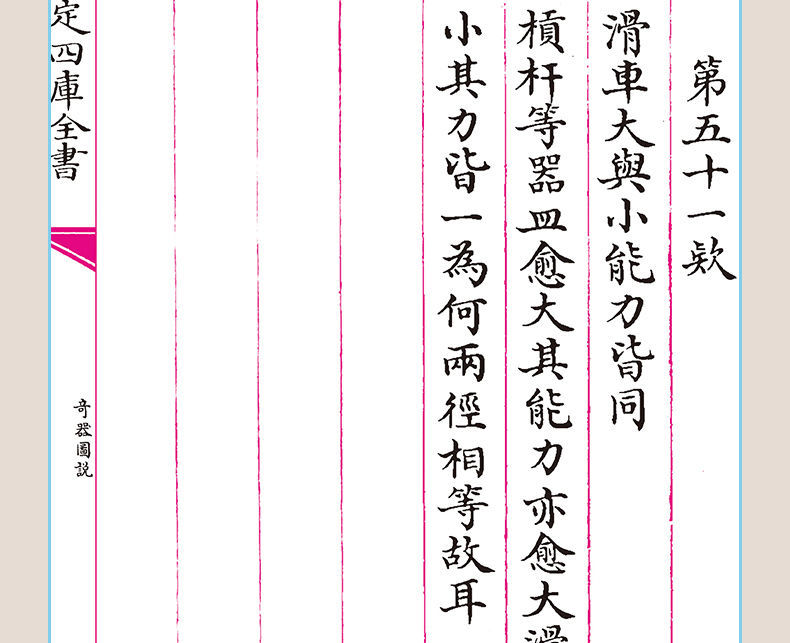 第五十一欵
滑車大與小能力皆同
槓杆等器皿愈大其能力亦愈大滑
小其力皆一為何兩徑相等故耳
定四庫全書
奇器圖説